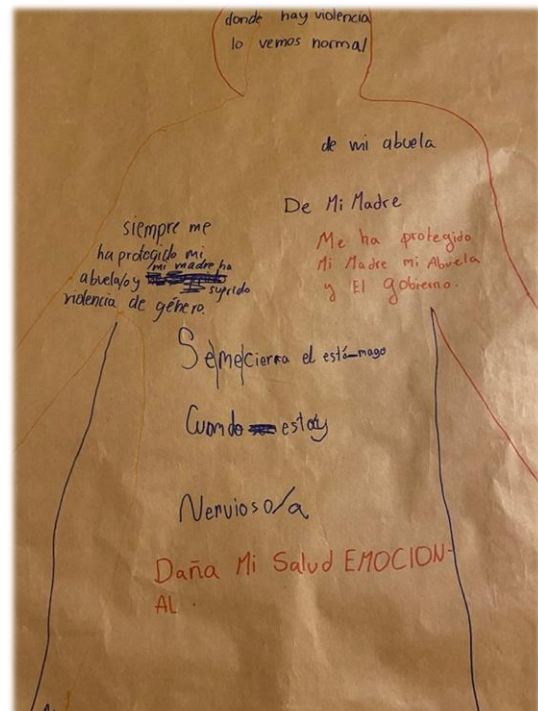 donde hay violencia
lo vemos normal
de mi abuela
De Mi Madre
siempre me
ha protegido mi
abuela/o y mi madre ha
sufrido
violencia de género.
Me ha protegido
Mi Madre mi Abuela
y El gobierno.
Se me cierra el estómago
Cuando estoy
Nervioso/a
Daña Mi Salud EMOCION-
AL.